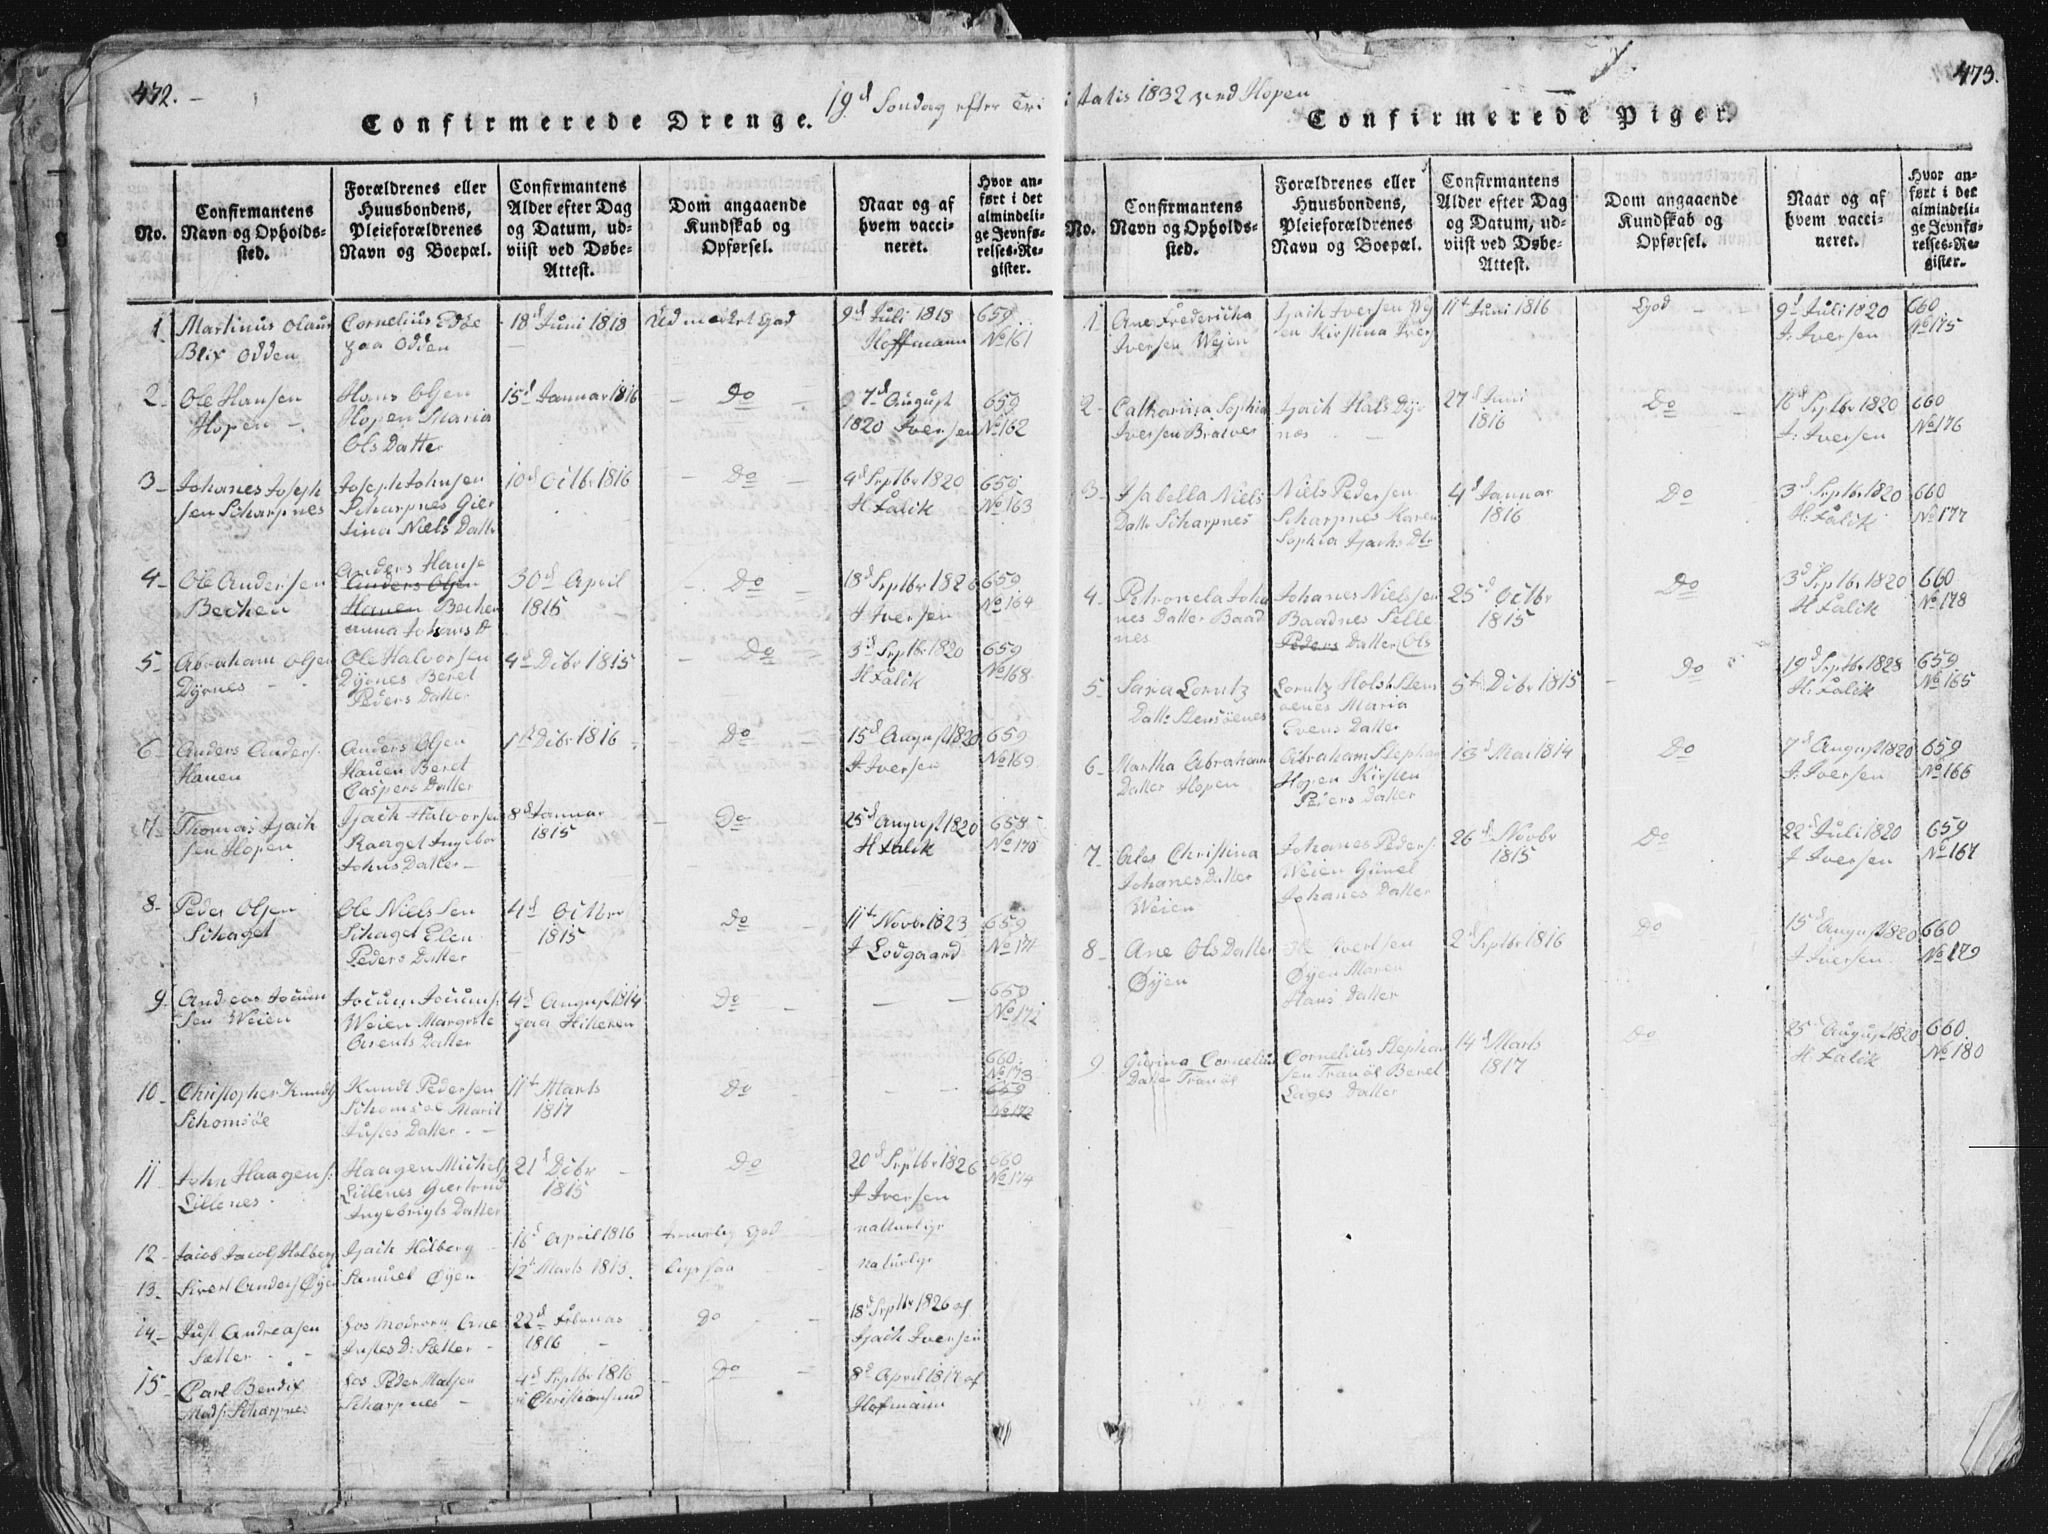 472.
19d Søndag efter Tri
Confirmerede Drenge.
No.
Confirmantens
Navn og Opholds-
sted.
Forældrenes eller
Huusbondens,
Pleieforældrenes
Navn og Boepæl.
Confirmantens
Alder efter Dag
og Datum, ud-
viist ved Døbe-
Attest.
Dom angaaende
Kundskab og
Opførsel.
Naar og af
hvem vacci-
neret.
Hvor an-
ført i det
almindeli-
ge Jevnfø-
relses-Re-
gister.
1
Martinus Olaus
Blix Odden
Cornelius Edøe
paa Odden
18d Juni 1818
Ud mærket God
9d Juli 1818
Hoffmann
659
No 161
2-
Ole Hansen
Hopen
Hans Olsen
Hopen Maria
Ols Datter
15d Januar 1816
Do
7d August
1820 Iversen
659
No 162
3-
Johanes Joseph
sen Scharpnes
Joseph Johnsen
Scharpnes Gier
tina Niels Datter
10d Octbr 1816
Do
4d Septbr 1820
H Falik
659
No 163
4-
Ole Andersen
Bechen
Anders Hanse
Anders Olsen
Hauen Bechen
Anna Johans D
30d April
1816
Do
18d Septbr 1826
I Iversen
659
No 164
5-
Abraham Olsen
Dyrnes
Ole Halvorsen
Dyrnes Beret
Peders Datter
4d Dcbr 1815
Do
3d Septbr 1820
H Falik
659
No 168
6-
Anders Anders:
Hauen
Anders Olsen
Hauen Beret
Caspers Datter
1t Dcbr 1816
Do
15d August 1820
I Iversen
659
No 169
7-
Thomas Isach
sen Hopen
Isach Halvorsen
Raaget Ingebor
Johns Datter
8d Januar
1815
Do
25d August 1820
H Falik
658
No 170
8-
Peder Olsen
Schaget
Ole Nielssen
Schaget Elen
Peders Datter
4d Octbr
1815
Do
11t Novbr 1823
I Lodgaard
659
No 171
9
Andreas Jocum
sen Weien
Jocum Jocums:
Weien Margrete
Arents Datter
4d August 1814
paa Hitteren
Do
659
No 172
10-
Christopher Knudts
Schomsøe
Knudt Pedersen
Schomsøe Marit
Justes Datter
11t Marts
1817
Do
660
No 173
659
No 172
11-
John Haagens:
Lillenes
Haagen Michels
Lillenes Giertrud
Ingebrigts Datter
21d Dcbr
1815
Do
20d Septbr 1826
I Iversen
660
No 174
12-
Jacob Jacob Holberg
Isach Holberg
16d April 1816
God
natturlige
13-
Sivert Anders Øyen
Samuel Øyen
12t Marts 1813
naturlige
14-
Just Andreasen
Sætter
hos Modreren Ane
Justes D: Sætter
22d Februar
1816
Do
18d Septbr 1826 af
Isach Iversen
15-
Carl Bendix
Mads: Scharpnes
hos Peder Matsen
Scharpnes
4d Septbr 1816
i Christiansund
Do
8d April 1817 af
Hofmann
473.
itatis 1832 ved Hopen
Confirmerede Piger.
No.
Confirmantens
Navn og Opholds-
sted.
Forældrenes eller
Huusbondens,
Pleieforældrenes
Navn og Boepæl.
Confirmantens
Alder efter Dag
og Datum, ud-
viist ved Døbe-
Attest.
Dom angaaende
Kundskab og
Opførsel.
Naar og af
hvem vacci-
neret.
Hvor an-
ført i det
almindeli-
ge Jevnfø-
relses-Re-
gister.
1
Ane Fredericha
Iversen Wejen
Isach Iversen Wej
en Kirstina Ivers
11t Juni 1816
God
9d Juli 1820
I: Iversen
660
No 175
2-
Catharina Sophia
Iversen Bratvær
Isach Hals Dyr
nes
27d Juni
1816
Do
18d Septbr 1820
I: Iversen
660
No 176
3-
Isabella Niels
Datter Scharpnes
Niels Pedersen
Scharpnes Karen
Sophia Isachs Dtr
4d Januar
1816
Do
3d Septbr 1820
H: Falik
660
No 177
4-
Petronela Joha
nes Datter Baad
nes
Johanes Nielssen
Baadnes Selle
Peders Datter Ols
25d Octbr
1815
Do
3d Septbr 1820
H Falik
660
No 178
5-
Sara Lorntz
Datt: Stensøenes
Lorntz Holst Stens
øenes Maria
Evens Datter
5t Dcbr 1815
Do
19d Septbr 1828
H: Falik
659
No 165
6-
Martha Abraham
Datter Hopen
Abraham Stephan
Hopen Kirsten
Peders Datter
13d Mai 1814
Do
7d August 1820
I: Iversen
659
No 166
7-
Ales Christina
Johanes Datter
Weien
Johanes Peders:
Weien Gunel
Johanes Datter
26d Novbr
1815
Do
22d Juli 1820
I Iversen
659
No 167
8-
Ane Ols Datter
Øyen
Ole Ivertsen
Øyen Maren
Hans Datter
2d Septbr 1816
Do
15d August 1820
I Iversen
660
No 179
9
Gurina Cornelius
Datter Tranøe
Cornelius Stephan
sen Tranøe Beret
Lages Datter
14d Marts
1817
Do
25d August 1820
H Falik
660
No 180